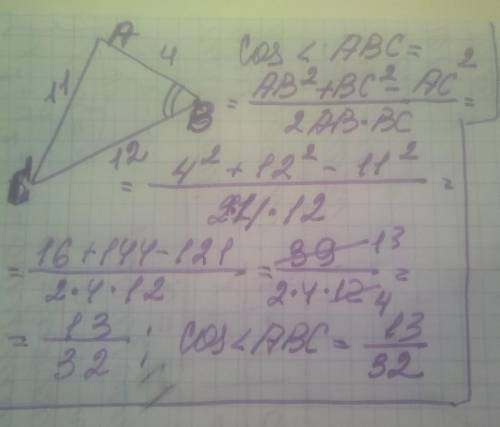 A
4
11
B
C
12
cos < ABC =
= AB² + BC² - AC² / 2AB·BC =
= 4² + 12² - 11² / 2·4·12 =
= 16 + 144 - 121 / 2·4·12 = 39 13 / 2·4·12 4 =
= 13 / 32 ; cos < ABC = 13 / 32